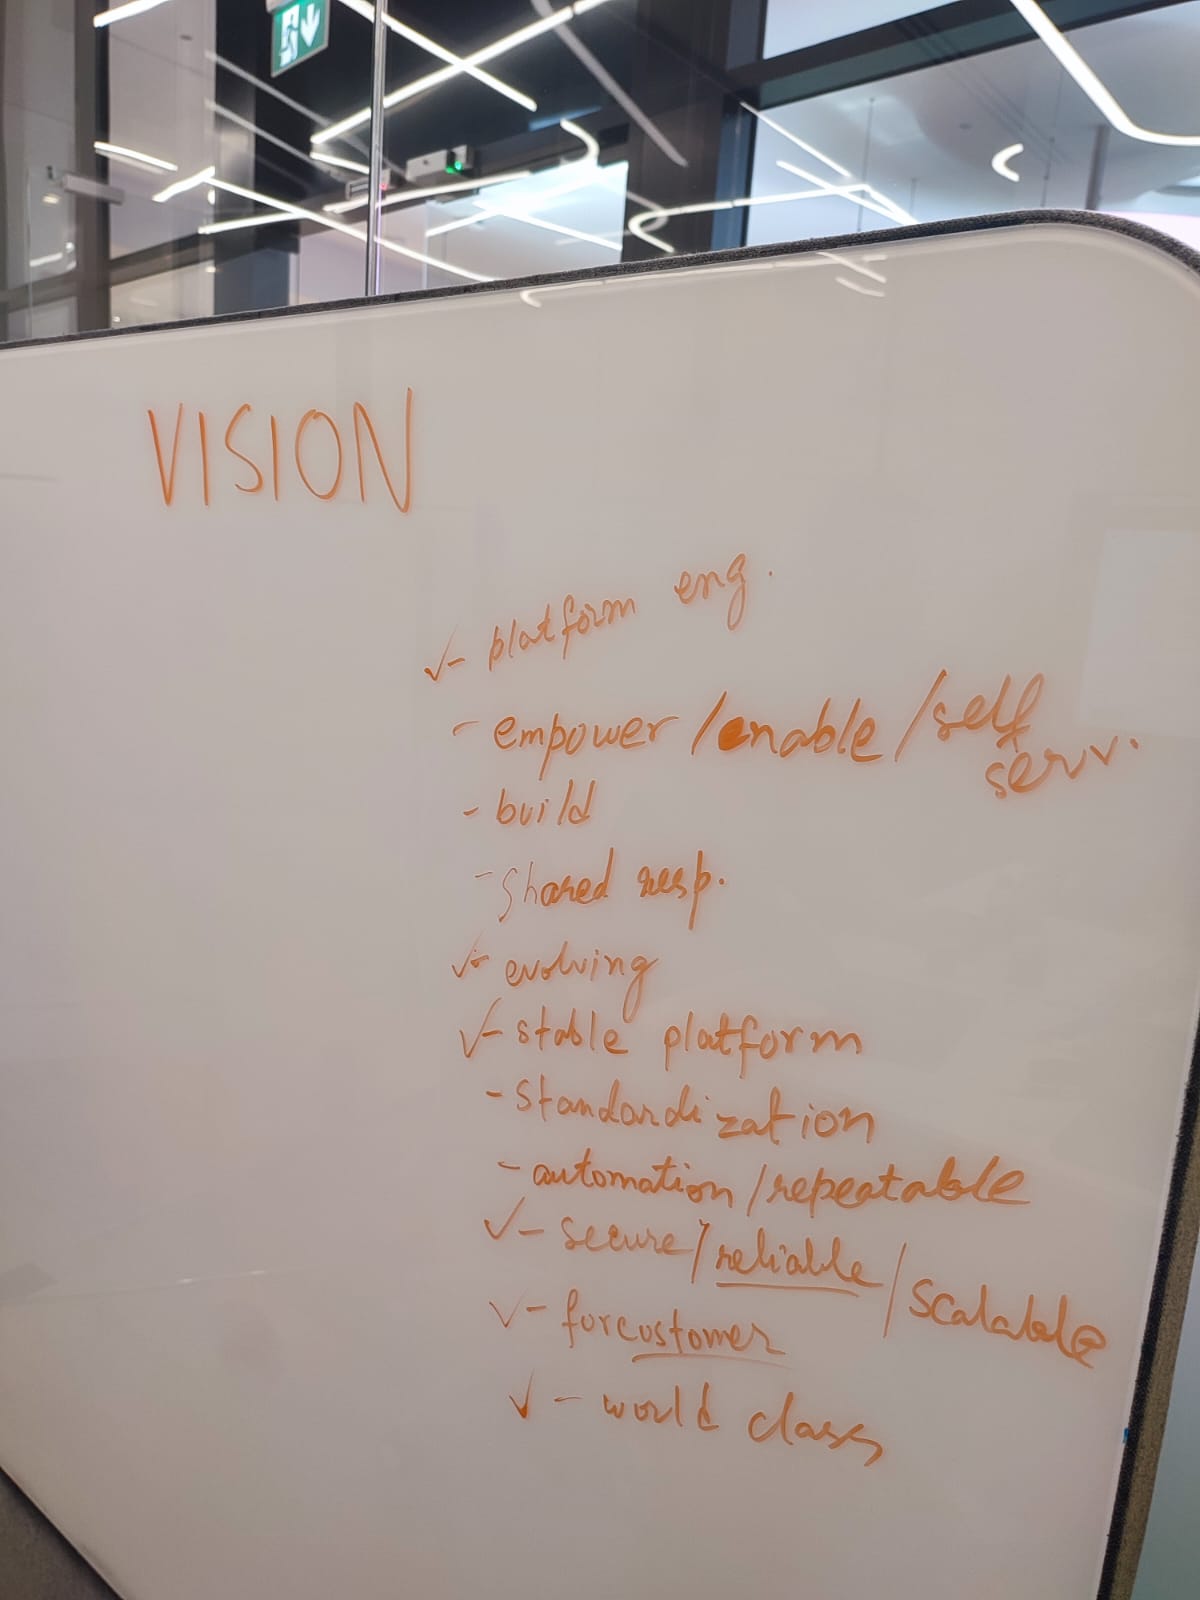 VISION
✓- platform eng.
- empower/enable/self
serv.
- build
- shared resp.
✓- evolving
✓- stable platform
- standardization
- automation/repeatable
✓- secure/reliable/scalable
✓- for customer
✓- world class